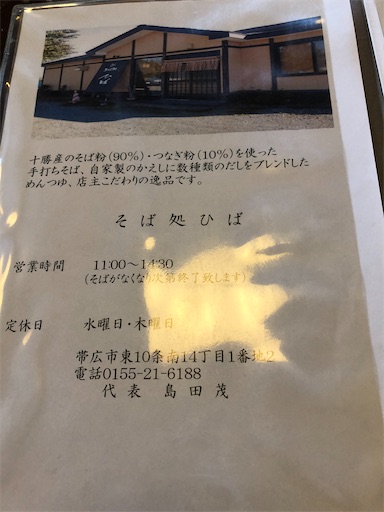 十勝産のそば粉(90%)・つなぎ粉(10%)を使った
手打ちそば、自家製のかえしに数種類のだしをブレンドした
めんつゆ、店主こだわりの逸品です。
そば処ひば
営業時間 11:00~14:30
(そばがなくなり次第終了致します)
定休日 水曜日・木曜日
帯広市東10条南14丁目1番地2
電話0155-21-6188
代表 島田茂